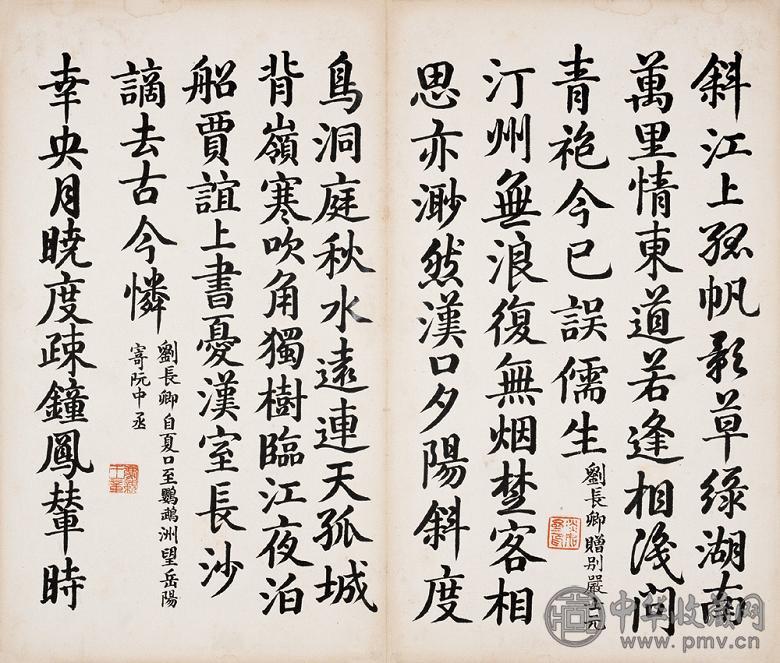 斜江上孤帆影草綠湖南
萬里情東道若逢相識問
青袍今已誤儒生
劉長卿贈別嚴士元
汀州無浪復無烟楚客相
思亦渺然漢口夕陽斜度
鳥洞庭秋水遠連天孤城
背嶺寒吹角獨樹臨江夜泊
船賈誼上書憂漢室長沙
謫去古今憐
劉長卿自夏口至鸚鵡洲望岳陽
寄阮中丞
幸央月曉度疎鐘鳳輦時
中华收藏网
www.pmv.cn